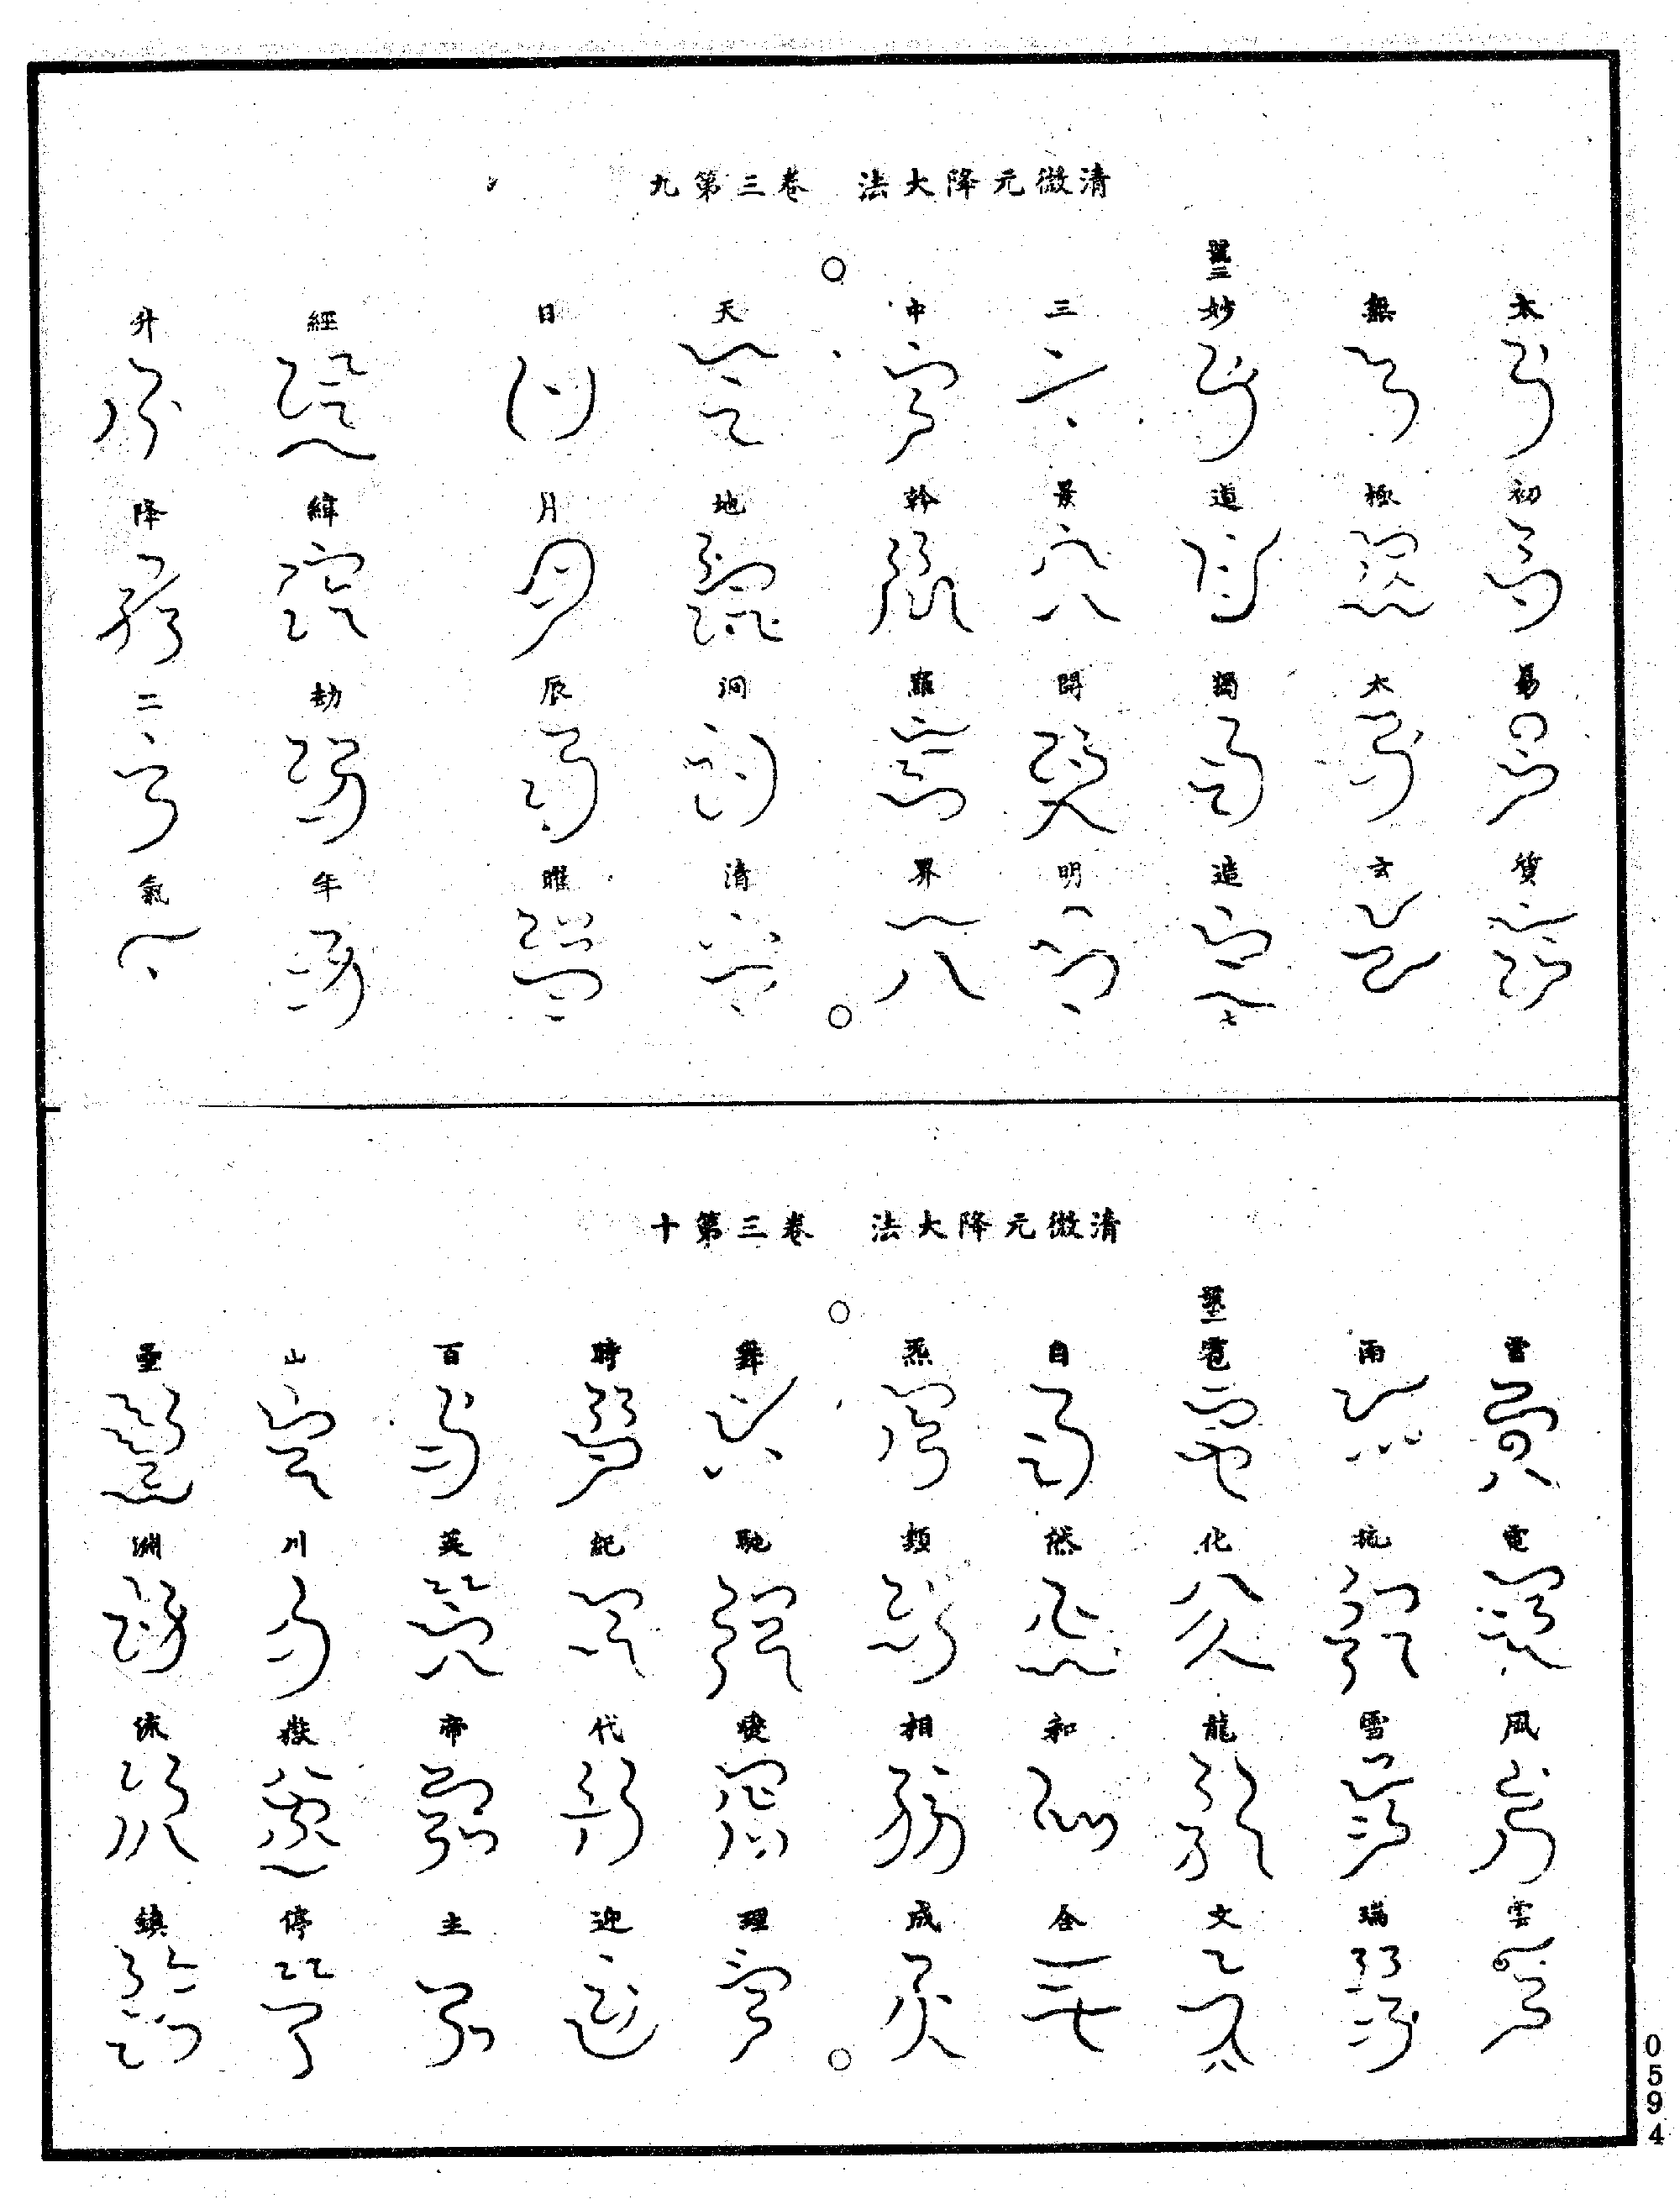 清微元降大法　卷三第九
太初易質
無極太玄
號三
妙道獨造
七
三景開明
中幹羅界
天地洞清
日月辰曜
經緯劫年
升降二氣
清微元降大法　卷三第十
雷電風雲
雨雪瑞
號三
雹化龍文
八
自然和
炁類相成
馳理
時紀代迎
百英帝主
山川嶽停
洲流鎮
0594